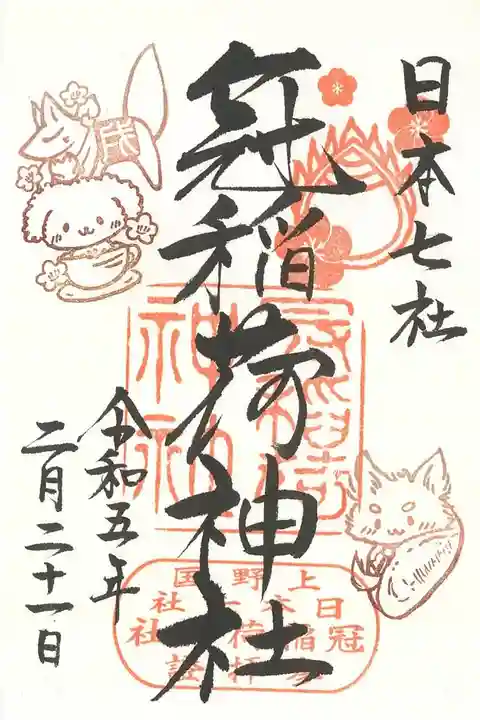 日本七社
冠稲荷神社
令和五年
二月二十一日
冠稲荷
神社
上野国
日本七社
冠稲荷社
参拝証